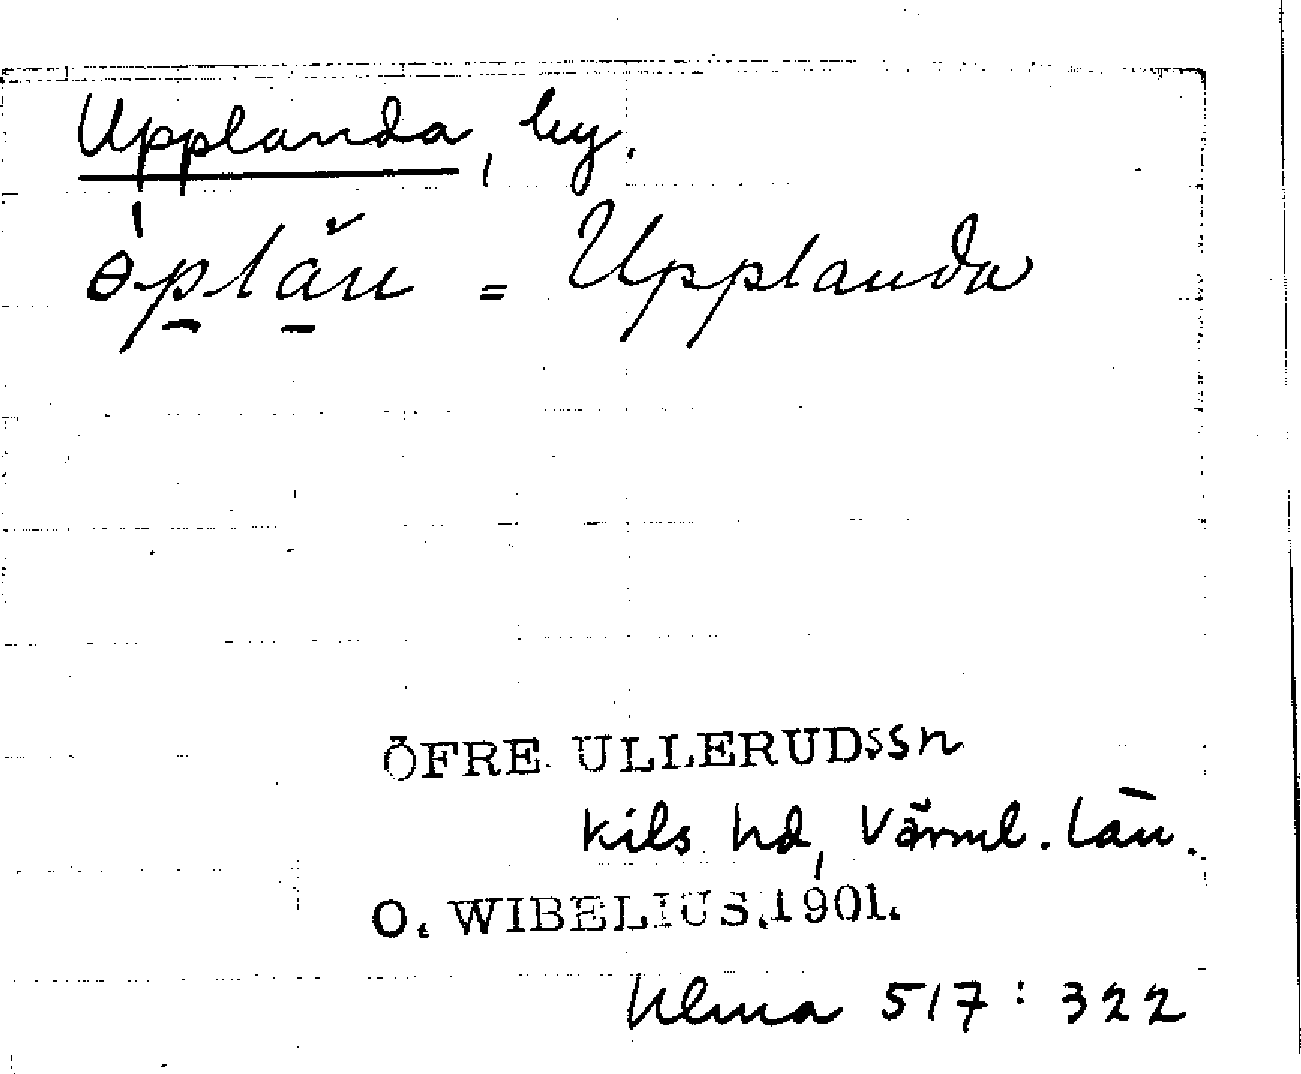 Upplanda, by.
ɵ́plăn = Upplanda
ÖFRE ULLERUDSSN
Kils hd, Värml. län.
O. WIBELIUS.1901.
Ulma 517:322